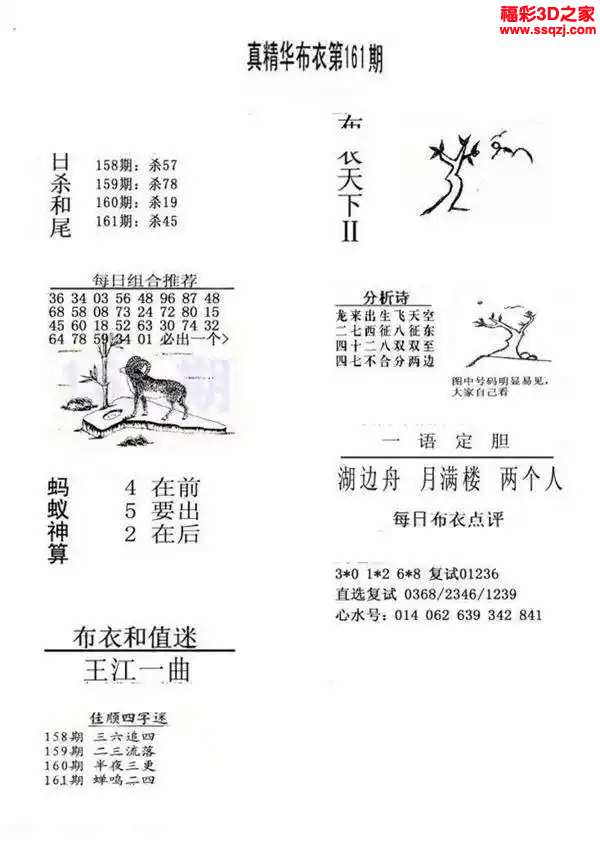 福彩3D之家
www.ssqzj.com
真精华布衣第161期
日杀和尾
158期：杀57
159期：杀78
160期：杀19
161期：杀45
布衣天下II
每日组合推荐
36 34 03 56 48 96 87 48
68 58 08 73 24 72 80 15
45 60 18 52 63 30 74 32
64 78 59 34 01 必出一个>
期
分析诗
龙来出生飞天空
二七西征八征东
四十二八双双至
四七不合分两边
图中号码明显易见，
大家自己看
蚂蚁神算
4 在前
5 要出
2 在后
一语定胆
湖边舟 月满楼 两个人
每日布衣点评
3*0 1*2 6*8 复试01236
直选复试 0368/2346/1239
心水号：014 062 639 342 841
布衣和值迷
王江一曲
佳顺四字迷
158期 三六追四
159期 二三流落
160期 半夜三更
161期 蝉鸣二四